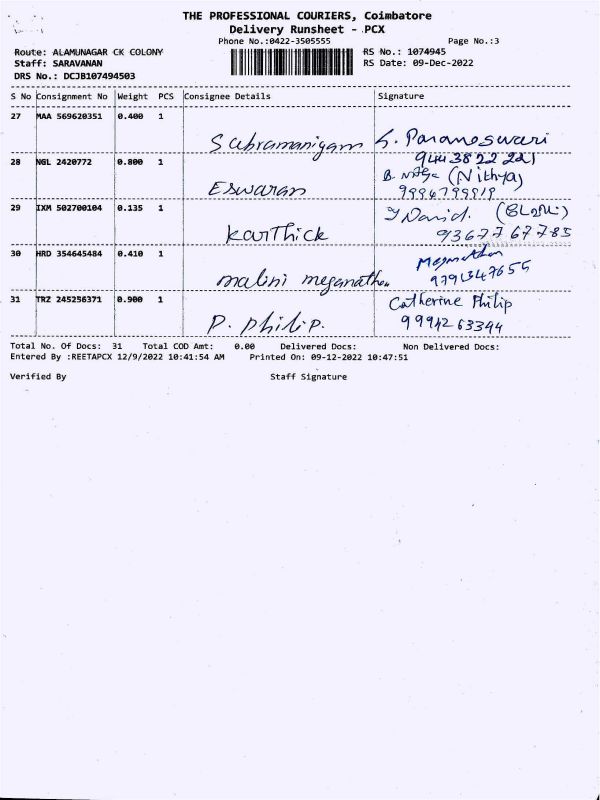 THE PROFESSIONAL COURIERS, Coimbatore
Delivery Runsheet - PCX
Phone No.:0422-3505555 Page No.:3
Route: ALAMUNAGAR CK COLONY RS No.: 1074945
Staff: SARAVANAN RS Date: 09-Dec-2022
DRS No.: DCJB107494503
S No Consignment No Weight PCS Consignee Details Signature
27 MAA 569620351 0.400 1
Subramaniyam S. Parameswari
28 NGL 2420772 0.800 1
B. (Nithya)
Eswaran 9994799919
29 IXM 502700104 0.135 1
J David.
Karthick 9367767785
30 HRD 354645484 0.410 1
Meganathan
malini meganathan 9791347655
31 TRZ 245256371 0.900 1
Catherine Philip
P. Philip. 99942 63344
Total No. Of Docs: 31 Total COD Amt: 0.00 Delivered Docs: Non Delivered Docs:
Entered By :REETAPCX 12/9/2022 10:41:54 AM Printed On: 09-12-2022 10:47:51
Verified By Staff Signature